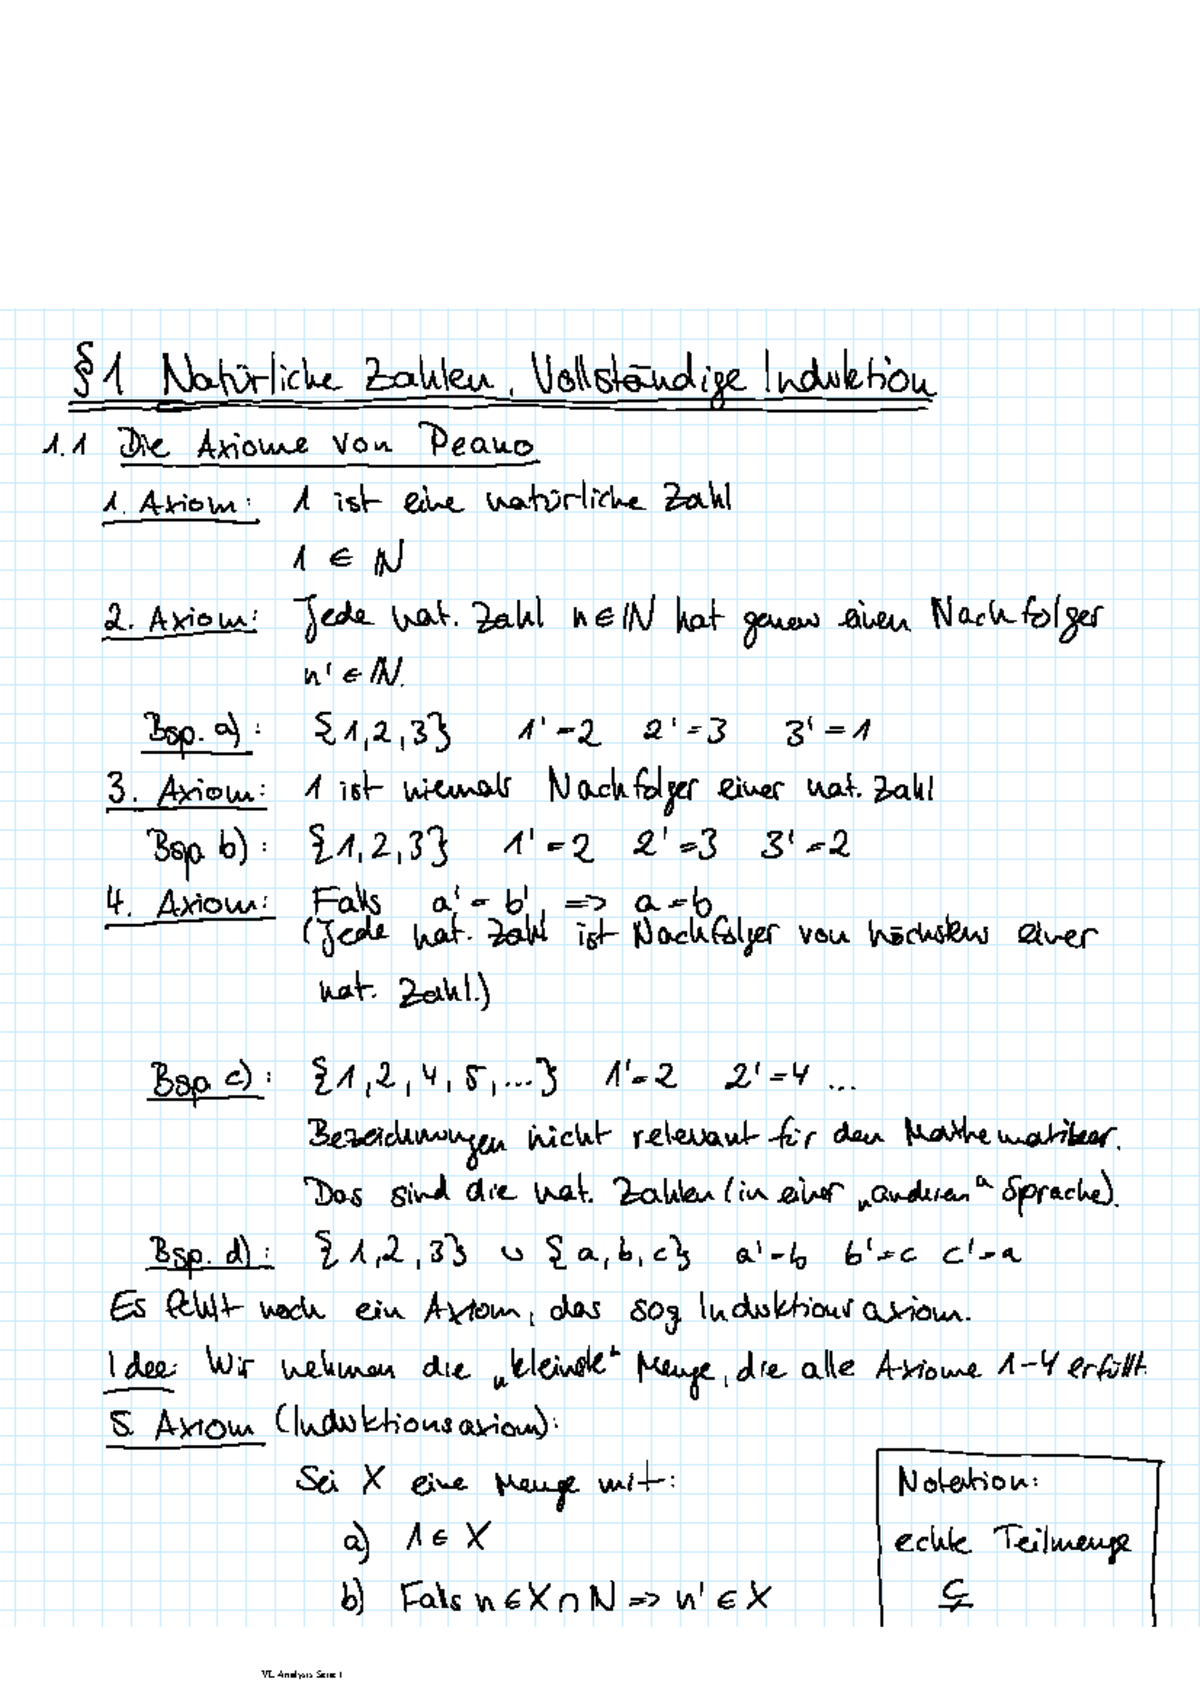 §1 Natürliche Zahlen, Vollständige Induktion
1.1 Die Axiome von Peano
1. Axiom: 1 ist eine natürliche Zahl
1 ∈ ℕ
2. Axiom: Jede nat. Zahl n ∈ ℕ hat genau einen Nachfolger
n' ∈ ℕ.
Bsp. a): {1,2,3} 1' = 2 2' = 3 3' = 1
3. Axiom: 1 ist niemals Nachfolger einer nat. Zahl
Bsp b): {1,2,3} 1' = 2 2' = 3 3' = 2
4. Axiom: Falls a' = b' => a = b
(Jede nat. Zahl ist Nachfolger von höchstens einer
nat. Zahl.)
Bsp c): {1,2,4,5,...} 1' = 2 2' = 4 ...
Bezeichnungen nicht relevant für den Mathematiker.
Das sind die nat. Zahlen (in einer „anderen“ Sprache).
Bsp. d): {1,2,3} ∪ {a,b,c} a' = b b' = c c' = a
Es fehlt noch ein Axiom, das sog Induktionsaxiom.
Idee: Wir nehmen die „kleinste“ Menge, die alle Axiome 1-4 erfüllt.
5. Axiom (Induktionsaxiom):
Sei X eine Menge mit:
a) 1 ∈ X
b) Falls n ∈ X ∩ N => n' ∈ X
Notation:
echte Teilmenge
⊊
VL Analysis Seite 1